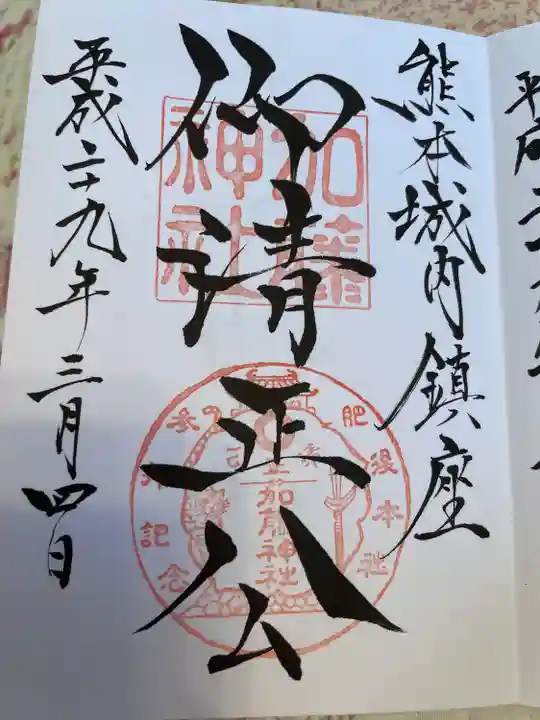 熊本城内鎮座
御清正公
平成二十九年三月四日
加藤神社
肥後本社
参拝記念
加藤神社
平成二十